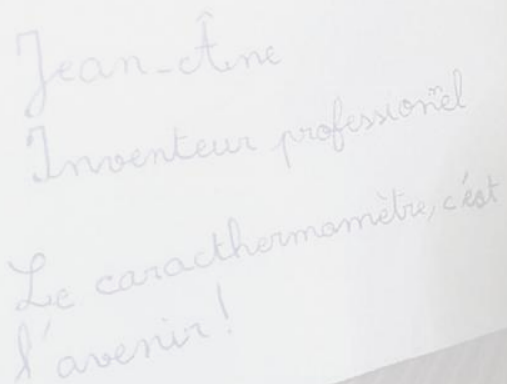 Jean-Âne
Inventeur professionnel
Le caracthermomètre, c'est
l'avenir!